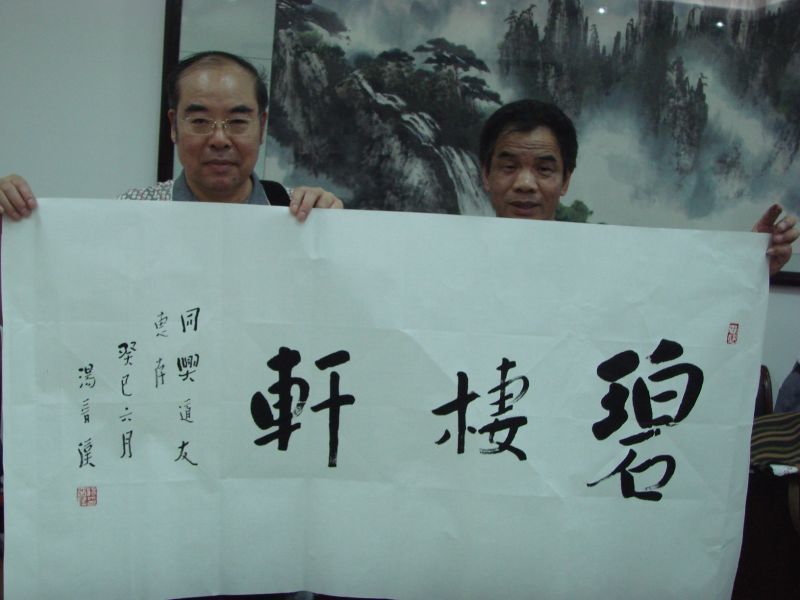 碧棲軒
同興道友
惠存
癸巳六月
湯晉漢